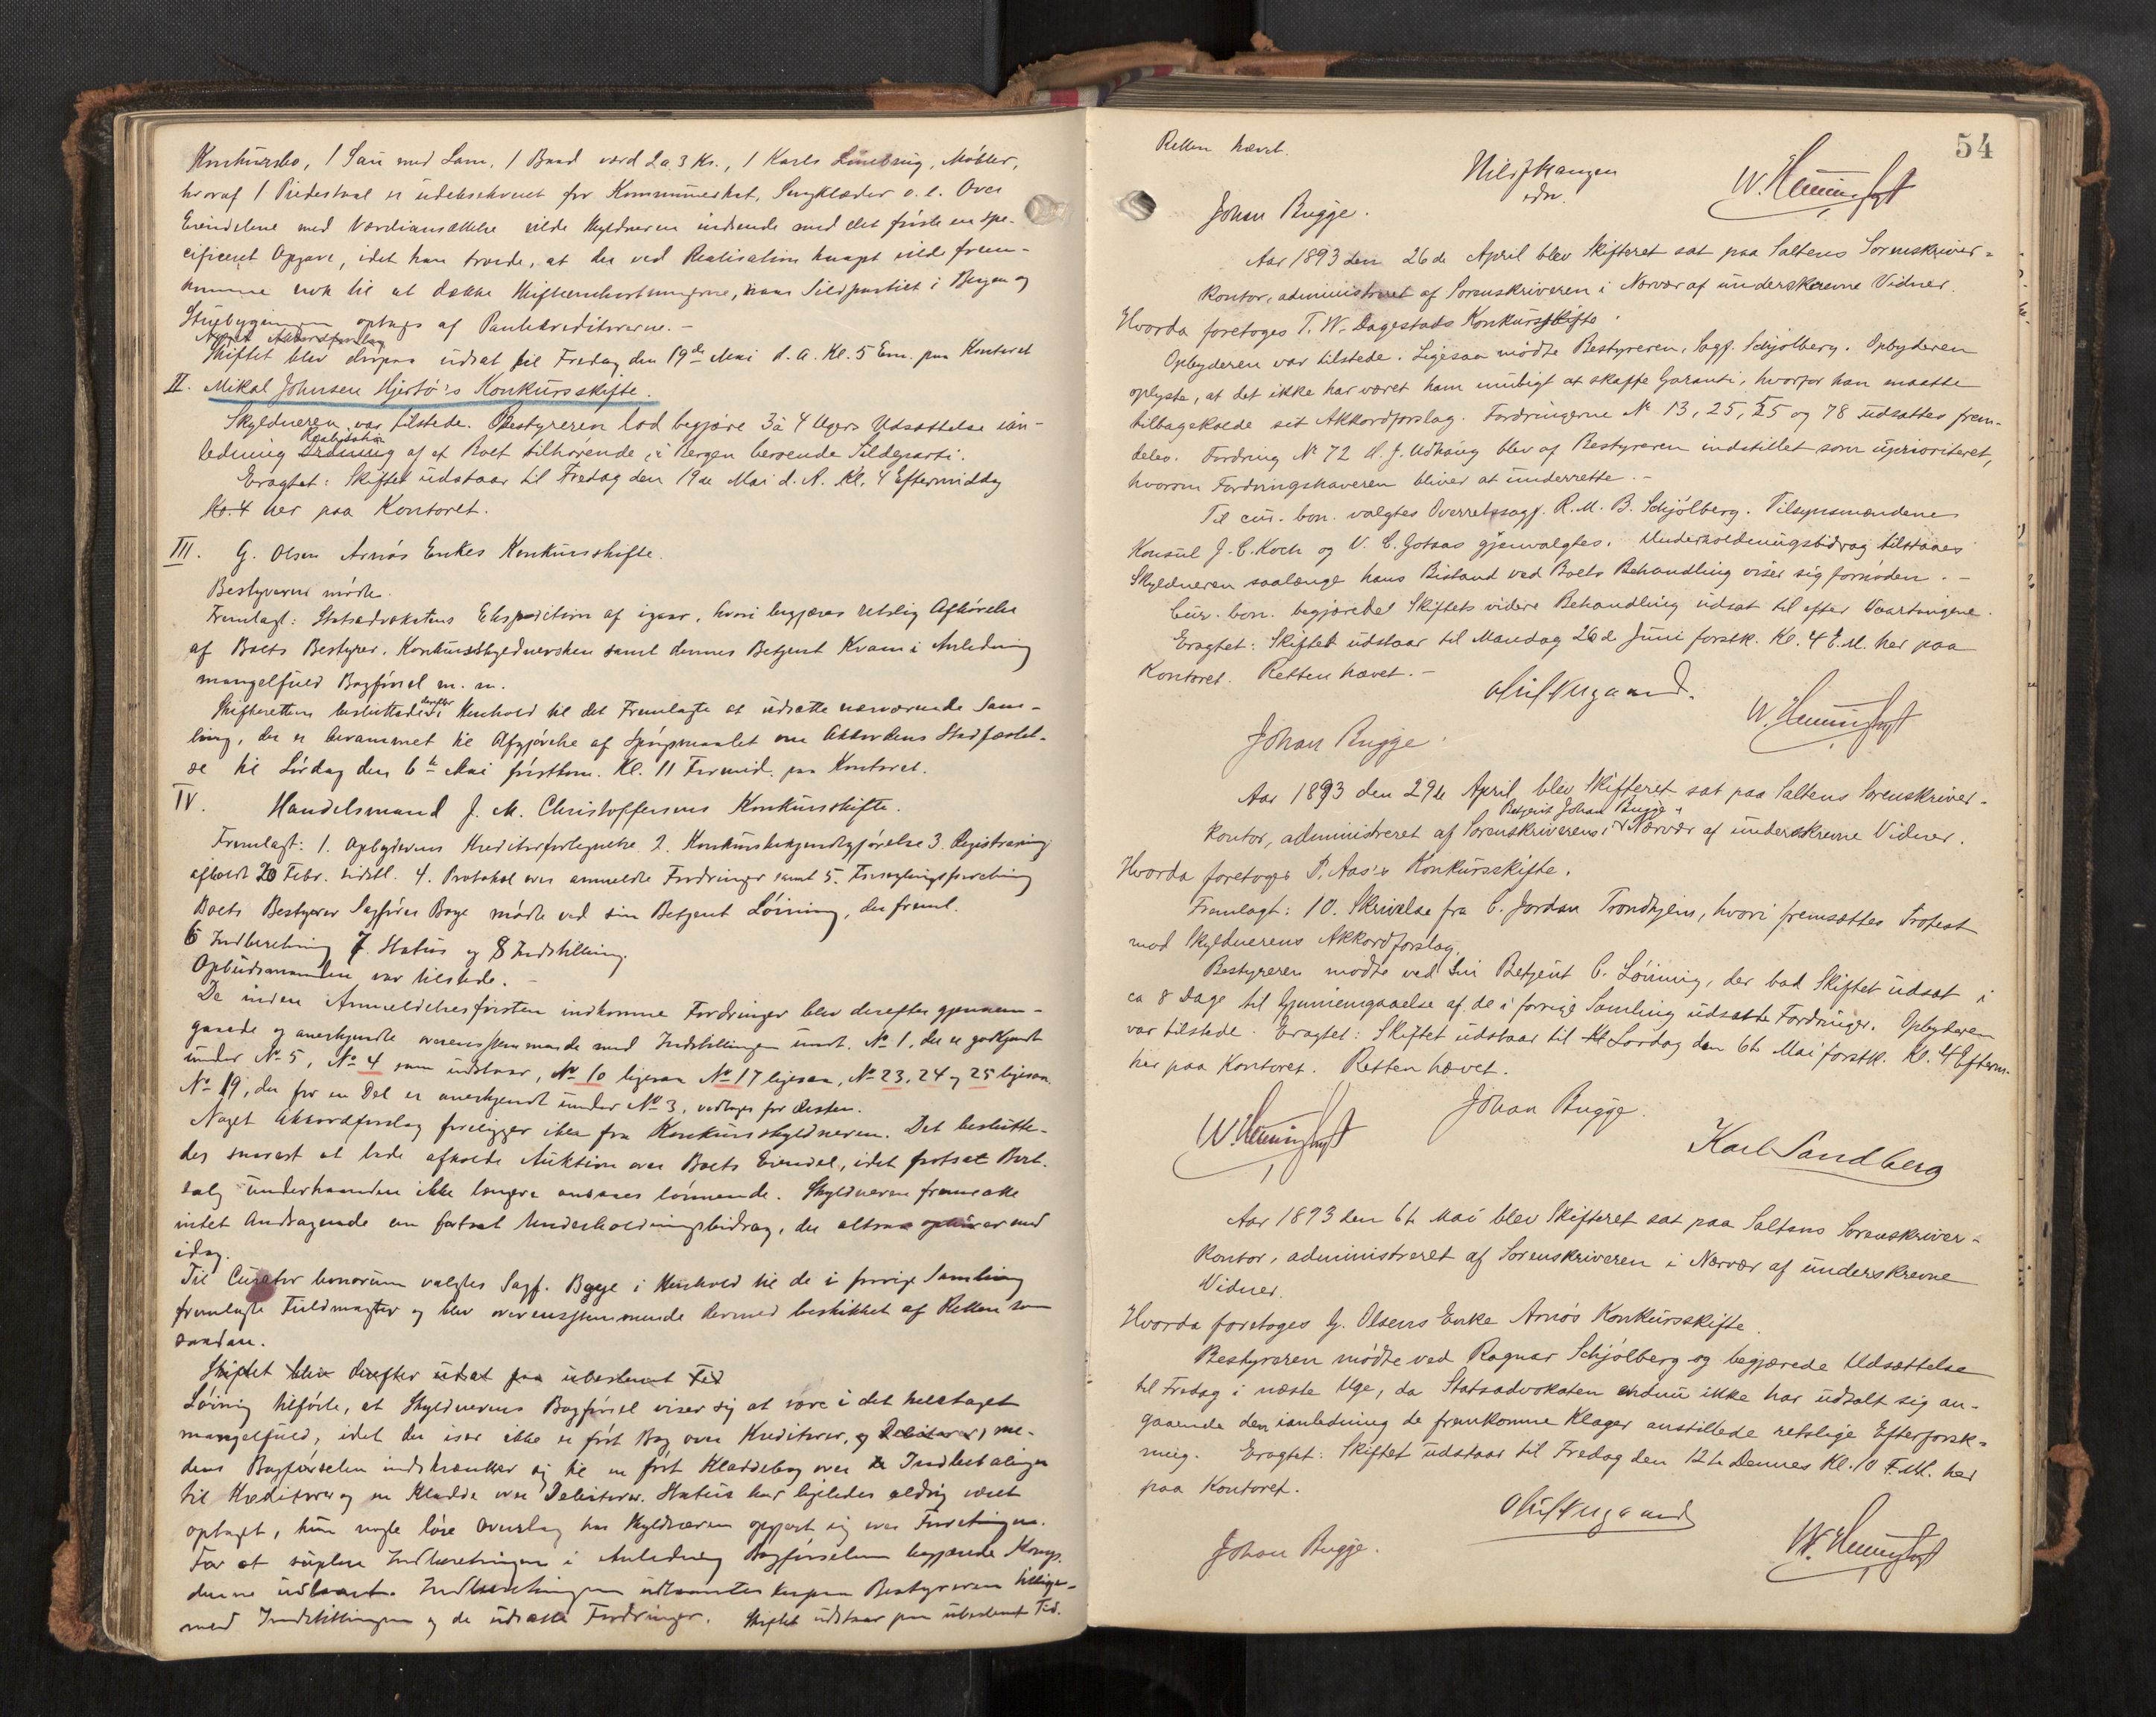 Konkursbo, 1 Sau med Lam, 1 Baad værd 2 a 3 Kr., 1 Karls Møbler,
hvoraf 1 Piedestal er udlaant for Kommuneskat, Sengklæder o. l. Over
Eiendelene med Værdiansættelse vilde Skyldneren indsende med det første en spe-
cificeret Opgave, idet han troede, at der ved Realisation knapt vilde frem-
komme nok til at dække Skifteomkostningerne, naar Sildpartiet i Bergen og
Stuebygningen optages af Pantekreditorerne. -
Noget Akkordforslag
Skiftet blev derpaa udsat til Fredag den 19de Mai d. A. Kl. 5 Em. paa Kontoret
II. Mikal Johnsen Hjertø's Konkursskifte.
Skyldneren var tilstede. Bestyreren lod begjære 3 à 4 Ugers Udsættelse ian-
Realisation
ledning af et Boet tilhørende, i Bergen beroende Sildeparti.
Eragtet: Skiftet udstaar til Fredag den 19de Mai d. A. Kl. 4 Eftermiddag
Kl. 4 her paa Kontoret.
III. G. Olsen Arnøs Enkes Konkursskifte.
Bestyreren mødte.
Fremlagt: Statsadvokatens Ekspedition af igaar, hvori begjæres retslig Afhørelse
af Boets Bestyrer, Konkursskyldnersken samt dennes Betjent Kvam i Anledning
mangelfuld Bogførsel m. m.
Skifteretten besluttede derefter i Henhold til det Fremlagte at udsætte nærværende Sam-
ling, der er berammet til Afgjørelse af Spørgsmaalet om Akkordens Stadfæstel-
se til Lørdag den 6te Mai førstkom. Kl. 11 Formid. paa Kontoret.
IV. Handelsmand J. M. Christoffersens Konkursskifte.
Fremlagt: 1. Opbyderens Kreditorfortegnelse 2. Konkursbekjendtgjørelse 3. Registrering
afholdt 20 Febr. sidstl. 4. Protokol over anmeldte Fordringer samt 5.
Boets Bestyrer Sagfører Boye mødte ved sin Betjent Lönning, der freml.
6 Indberetning 7. Status og 8 Indstilling.
Opbudsmanden var tilstede. -
De inden Anmeldelsesfristen indkomne Fordringer blev derefter gjennem-
gaaede og anerkjendte overensstemmende med Indstillingen undt. No 1, der er godkjendt
under No 5, No 4 som udstaar, No 10 ligesaa No 17 ligesaa, No 23, 24 og 25 ligesaa.
No 19, der for en Del er anerkjendt under No 3, vedtages for Resten.
Noget Akkordforslag foreligger ikke fra Konkursskyldneren. Det beslutte-
des snarest at lade afholde Auktion over Boets Eiendel, idet fortsat Bort-
salg underhaanden ikke længere ansaaes lønnende. Skyldneren fremsatte
intet Andragende om fortsat Underholdningsbidrag, der altsaa ophører med
idag.
Til Curator bonorum valgtes Sagf. Boye i Henhold til de i forrige Samling
fremlagte Fuldmagter og blev overensstemmende dermed beskikket af Retten som
saadan.
Skiftet blev derefter udsat paa ubestemt Tid
Lönning tilførte, at Skyldnerens Bogførsel viser sig at være i det heletaget
mangelfuld, idet der især ikke er ført Bog over Kreditorer, og Debitorer, me-
dens Bogførselen indskrænker sig til en ført Kladdebog over Indbetalinger
til Kreditorer og en Kladde over Debitorer. Status har ligeledes aldrig været
optaget, kun nogle løse Overslag har Skyldneren opgjort sig over Forretningen.
For at suplere Indberetningen i Anledning Bogførselen begjærede Komp.
denne udlaant. Indberetningen udlaantes Bestyreren tillige-
med Indstillingen og de udsatte Fordringer. Skiftet udstaar paa ubestemt Tid.
54
Retten hævet.
W.
Johan Bugge.
Aar 1893 den 26de April blev Skifteret sat paa Saltens Sorenskriver-
kontor, administreret af Sorenskriveren i Nærvær af underskrevne Vidner.
Hvorda foretoges T. W. Dagestads Konkursskifte.
Opbyderen var tilstede. Ligesaa mødte Bestyreren, Sagf. Schjølberg. Opbyderen
oplyste, at det ikke har været ham muligt at skaffe Garanti, hvorfor han maatte
tilbagekalde sit Akkordforslag. Fordringerne No 13, 25, 25 og 78 udsattes frem-
deles. Fordring No 72 A. J. Udhaug blev af Bestyreren indstillet som uprioriteret,
hvorom Fordringshaveren bliver at underrette. -
Til cur. bon. valgtes Overretssagf. R. M. B. Schjølberg. Tilsynsmændene
Konsul J. C. Koch og V. C. Gotaas gjenvalgtes. Underholdningsbidrag tilstaaes
Skyldneren saalænge hans Bistand ved Boets Behandling viser sig fornøden. -
Cur. bon. begjærede Skiftets videre Behandling udsat til efter Vaartingene.
Eragtet: Skiftet udstaar til Mandag 26de Juni førstk. Kl. 4 E. M. her paa
Kontoret. Retten hævet. -
W.
Johan Bugge.
Aar 1893 den 29de April blev Skifteret sat paa Saltens Sorenskriver-
Betjent Johan Bugge i
kontor, administreret af Sorenskriverens Nærvær af underskrevne Vidner.
Hvorda foretoges P. Aas's Konkursskifte.
Fremlagt: 10. Skrivelse fra C. Jordan Trondhjem, hvori fremsættes Protest
mod Skyldnerens Akkordforslag.
Bestyreren mødte ved sin Betjent C. Lönning, der bad Skiftet udsat i
ca 8 Dage til Gjennemgaaelse af de i forrige Samling udsatte Fordringer. Opbyderen
var tilstede. Eragtet: Skiftet udstaar til Kl Lørdag den 6te Mai førstk. Kl. 4 Efterm.
her paa Kontoret. Retten hævet.
W.
Johan Bugge.
Karl Sandberg
Aar 1893 den 6te Mai blev Skifteret sat paa Saltens Sorenskriver-
kontor, administreret af Sorenskriveren i Nærvær af underskrevne
Vidner.
Hvorda foretoges G. Olsens Enke Arnøs Konkursskifte.
Bestyreren mødte ved Ragnar Schjølberg og begjærede Udsættelse
til Fredag i næste Uge, da Statsadvokaten endnu ikke har udtalt sig an-
gaaende den ianledning de fremkomne Klager anstillede retslige Efterforsk-
ning. Eragtet: Skiftet udstaar til Fredag den 12te Dennes Kl. 10 F. M. her
paa Kontoret.
W.
Johan Bugge.